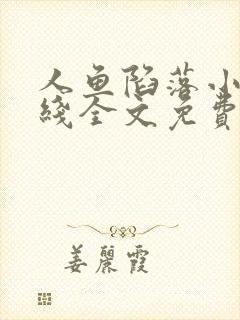 人鱼陷落小
线全文免费
姜丽霞